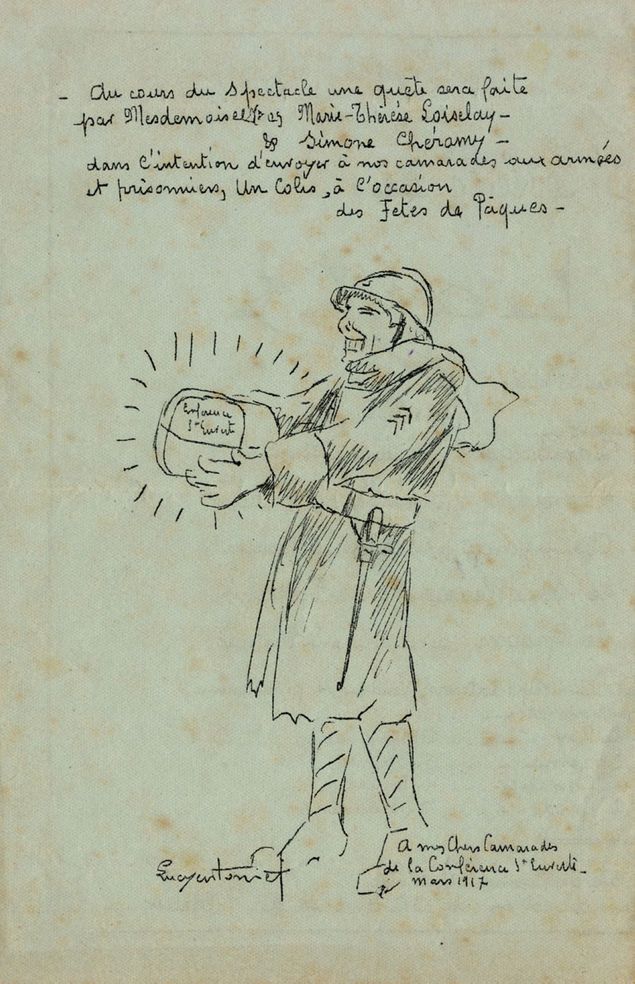 - Au cours du Spectacle une quête sera faite
par Mesdemoiselles Marie-Thérèse Loiselay -
& Simone Chéramy -
dans l'intention d'envoyer à nos camarades aux armées
et prisonniers, Un Colis, à l'occasion
des Fetes de Pâques -
Conférence
St Euverte
A mes Chers Camarades
de la Conférence St Euverte -
Mars 1917